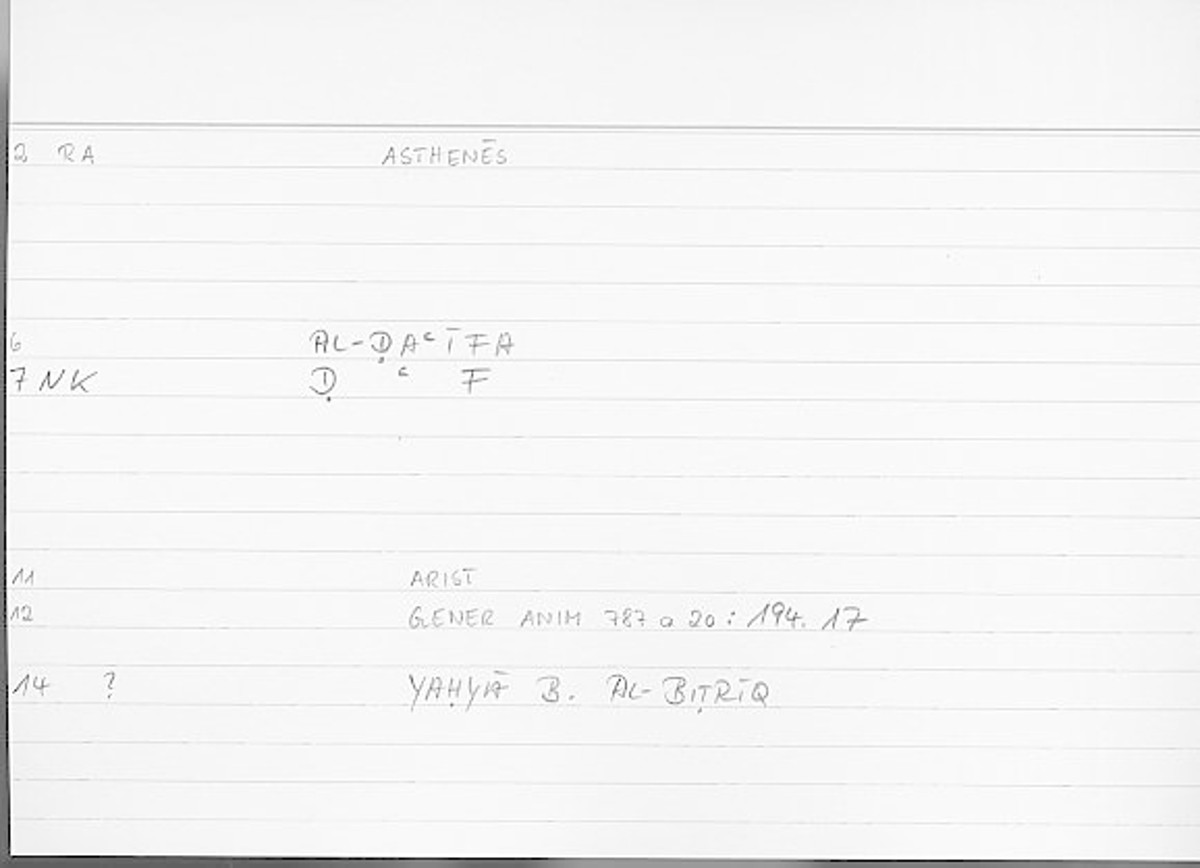 2 RA ASTHENĒS
6 AL-ḌAʿĪFA
7 NK Ḍ ʿ F
11 ARIST
12 GENER ANIM 787 a 20: 194. 17
14 ? YAḤYĀ B. AL-BIṬRĪQ